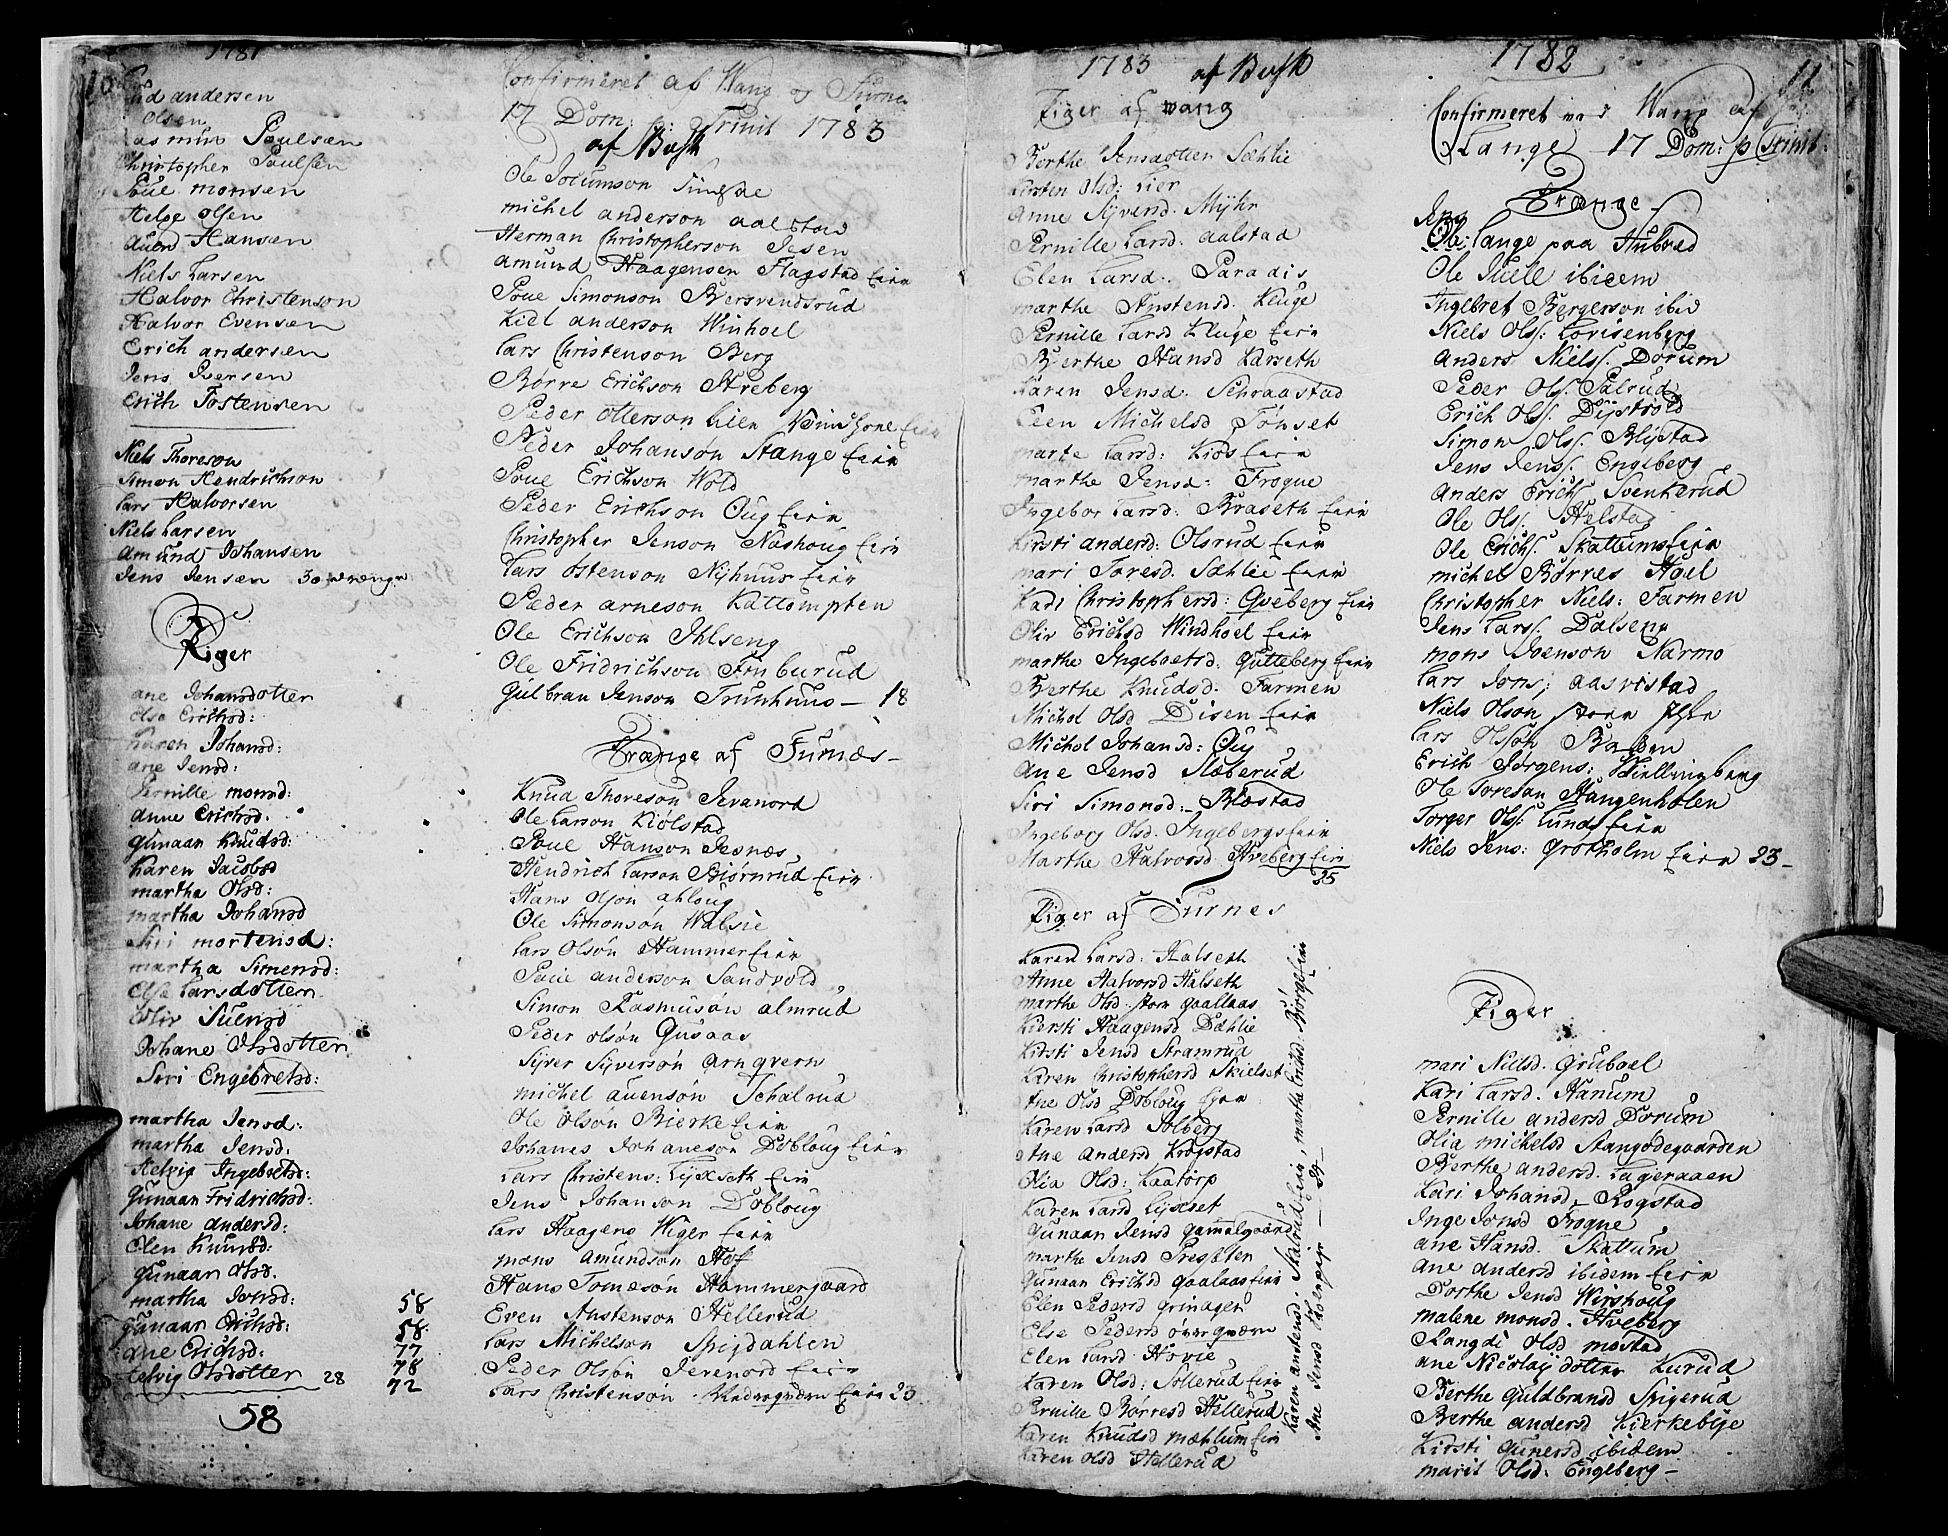 1781
andersen
Olsen
Rasmus Poulsen
Christopher Poulsen
Poul monsen
Helge olsen
Auend Hansen
Niels Larsen
Halvor Christenson
Halvor Evensen
Erich andersen
Jens Iversen
Erich Tostensen
Niels Thoreson
Simon Hendrichson
Lars Halvorsen
Niels Larsen
Amund Johansen
Jens Jensen 30 drenge
Piger
ane Johansdotter
Else Erichsd:
Karen Johansd:
ane Jensd:
Pernille monsd:
anne Erichsd:
gunaar Knudsd:
Karen Jacobsd
martha Olsd:
martha Johansd
Siri mortensd:
martha Simensd:
Else Larsdotter
Johane Olsdotter
Siri Engebretsd:
martha Jensd:
martha Jensd.
Helvig Ingebretsd:
Gunaar Fridrichsd:
Johane andersd:
Elen Knudsd:
gunaar Olsd.
martha Jonsd: 58
gunaar Erichsd: 58
ane Erichsd: 77
Helvig Olsdotter 28 78
72
58
Confirmeret af Wang og Furnes
17 Dom: p: Trinit 1783
af Bush
Ole Jocumson
michel anderson aalstad
Herman Christopherson Jesen
Amund Haagensen Flagstad Eier
Poul Simonson Bersvendsrud
Kiel anderson Winhoel
Lars Christenson Berg
Børre Erichson Hveberg
Peder Otterson Lien
Peder Johansøn Stange Eier
Poul Erichson Wold
Peder Erichson Oug Eier
Christopher Jenson Nashoug Eier
Lars Ostenson Nyhuus Eier
Peder arneson Kattompten
Ole Erichson Ihlseng
Ole Fridrichson Finburud
Gulbran Jenson Trunhuus - 18
Drænge af Furnæs -
Knud Thoreson Jevanord
Ole Larson Kiølstad
Poul Hanson Jesnæs
Hendrich Larson Biørnrud Eier
Hans
Ole Simonsøn Walsie
Lars Olsøn Hammer Eier
Poul anderson Sandvold
Simon Rasmusøn almrud
Peder olsøn Gusaas
Syver Syversøn Arnqvern
michel auensøn Schalrud
Ole Olsøn Bierke Eier
Johanes Johaneson Dobloug Eier
Lars Christens: Lyseth Eier
Jens Johanson Dobloug
Lars Haagens Wiger Eier
mons amundsøn Hof
Hans Tomesøn Hammergaard
Even Austenson Hellerud
Lars Michelson Spijdahlen
Peder Olsøn Jevenord Eier
Lars Christensøn Eier 23
1783 af Bush
Piger af wang
Berthe Jensdotter Sæhlie
Kirsten Olsd: Lier
Anne Syversd. Myhr
Pernille Larsd. aalstad
Elen Larsd. Paradis
marthe Austensd. Kluge
Pernille Larsd Kluge Eier
Berthe Hansd Karseth
Karen Jensd: Schraastad
Elen Michelsd Tønset
marte Larsd: Kiøs Eier
marthe Jensd: Frogue
Ingebor Larsd: Braseth Eier
Kirsti andersd: Olsrud Eier
mari Toresd. Sæhlie Eier
Kari Christophersd: Qveberg Eier
Oliv Erichsd Windhoel Eier
marthe Ingeboetsd: Gutteberg Eier
Berthe Knudsd: Farmen
Michol Olsd Disen Eier
Michol Johansd: Ouy
Ane Jensd Slæberud
Siri Simonsd: Blæstad
Ingeborg Olsd. Ingebergs Eier
Marthe Halvorsd. Hveberg Eier
25
Piger af Furnes
Karen Larsd: Halseth
Anne Halvorsd Halseth
marthe Olsd. stor gaallaas
Kiersti Haagensd Dæhlie
Kirsti Jensd Stramrud
Karen Christophersd Skielset
Ane Olsd Dobloug Eier
Karen Larsd Solberg
Ane Andersd Krogstad
Olia Olsd: Kaatorp
Karen Larsd Lyset
Gunaar Jensd gammelgaard
marthe Jensd Prestæter
Gunaar Erichsd gaalaas Eier
Elen Pedersd grinager
Else Pedersd øverqværn
Elen Larsd Hovie
Karen Olsd: Sollerud Eier
Pernille Børresd Hellerud
Karen Knudsd mæhlum Eier
Karen Olsd Hellerud
Karen austensd. Skalrud Eier, marthe Endresd: Biørge Eier
Ane Jensd Stor
1782
11
Confirmeret wed Wang af
Stange 17 Dom: p Trinit:
Drænge
Jens
Ole Lange paa Hubred
Ole Juell ibidem
Ingebret Bergerson ibid
Niels Ols: Lovisenberg
Anders Niels: Dørum
Peder Ols: Palrud
Erich Ols: Dystvold
Simon Ols: Blystad
Jens Jens: Engeberg
Anders Erichs: Svenkerud
Ole Ols: Helstad
Ole Erichs: Skattums Eier
michel Børres Hoel
Christopher Niels: Farmen
Jens Lars: Dalseng
mons Svenson Narmo
Lars Jons: aasvestad
Niels Olson store Ihle
Lars Olsøn Bakken
Erich Jørgens: Kiellingberg
Ole Toresøn Haugenholen
Torger Ols: Lunds Eier
Niels Jens: Grotholm Eier 23-
Piger
mari Nielsd. Grüboel
Kari Larsd. Hanum
Pernille andersd Dørum
Olia michelsd Stangodegaarden
Berthe andersd. Lageraaen
Kari Johansd. Rogstad
Inge Jonsd Frogne
ane Hansd. Skattum
ane andersd ibidem Eier
Dorthe Jensd Wirshoug
malene monsd. Hveberg
Rangdi Olsd mostad
ane Nicolay dotter Kurud
Berthe Guldbransd Spigerud
Berthe andersd Kierkebye
Kirsti gunersd ibidem
marit Olsd. Engeberg -